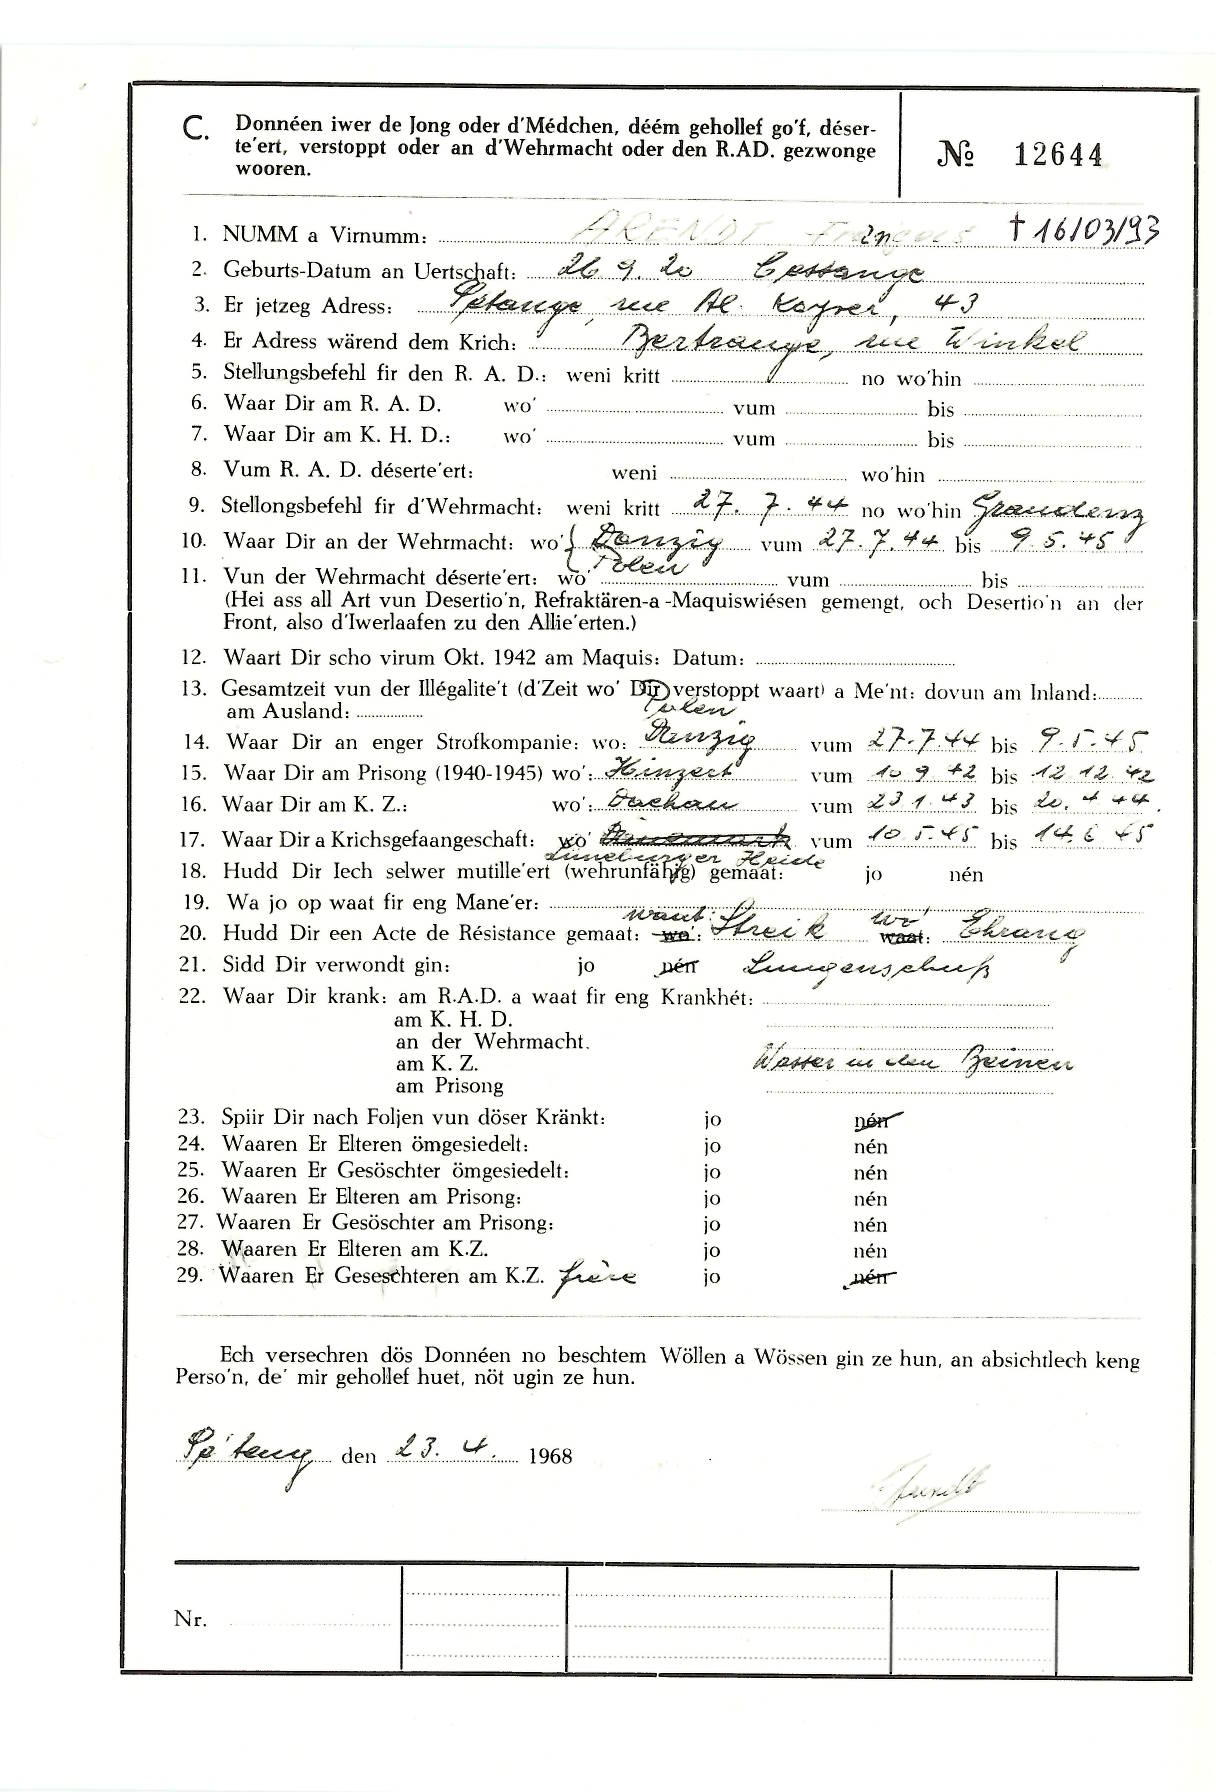 C. Donnéen iwer de Jong oder d'Médchen, déém gehollef go'f, déser-
te'ert, verstoppt oder an d'Wehrmacht oder den R.AD. gezwonge
wooren.
№ 12644
1. NUMM a Virnumm: ARENDT François † 16/03/93
2. Geburts-Datum an Uertschaft: 26 9. 20 Cessange
3. Er jetzeg Adress: Pétange, rue Al. Kayser, 43
4. Er Adress wärend dem Krich: Bertrange, rue Winkel
5. Stellungsbefehl fir den R. A. D.: weni kritt no wo'hin
6. Waar Dir am R. A. D. wo' vum bis
7. Waar Dir am K. H. D.: wo' vum bis
8. Vum R. A. D. déserte'ert: weni wo'hin
9. Stellongsbefehl fir d'Wehrmacht: weni kritt 27. 7. 44 no wo'hin Graudenz
10. Waar Dir an der Wehrmacht: wo' Danzig vum 27.7.44 bis 9.5.45
Polen
11. Vun der Wehrmacht déserte'ert: wo' vum bis
(Hei ass all Art vun Desertio'n, Refraktären-a -Maquiswiésen gemengt, och Desertio'n an der
Front, also d'Iwerlaafen zu den Allie'erten.)
12. Waart Dir scho virum Okt. 1942 am Maquis: Datum:
13. Gesamtzeit vun der Illégalite't (d'Zeit wo' Dir verstoppt waart) a Me'nt: dovun am Inland:
am Ausland:
Polen
14. Waar Dir an enger Strofkompanie: wo: Danzig vum 27.7.44 bis 9.5.45
15. Waar Dir am Prisong (1940-1945) wo': Hinzert vum 10 9 42 bis 12 12 42
16. Waar Dir am K. Z.: wo': Dachau vum 23 1 43 bis 20. 4 44.
17. Waar Dir a Krichsgefaangeschaft: wo' vum 10.5.45 bis 14.6 45
Lüneburger Heide
18. Hudd Dir Iech selwer mutille'ert (wehrunfähig) gemaat: jo nén
19. Wa jo op waat fir eng Mane'er:
waat: wo'
20. Hudd Dir een Acte de Résistance gemaat: wo': Streik waat: Ehrang
21. Sidd Dir verwondt gin: jo nén Lungenschuß
22. Waar Dir krank: am R.A.D. a waat fir eng Krankhét:
am K. H. D.
an der Wehrmacht.
am K. Z. Wasser in den Beinen
am Prisong
23. Spiir Dir nach Foljen vun döser Kränkt: jo nén
24. Waaren Er Elteren ömgesiedelt: jo nén
25. Waaren Er Gesöschter ömgesiedelt: jo nén
26. Waaren Er Elteren am Prisong: jo nén
27. Waaren Er Gesöschter am Prisong: jo nén
28. Waaren Er Elteren am K.Z. jo nén
29. Waaren Er Geseschteren am K.Z. frère jo nén
Ech versechren dös Donnéen no beschtem Wöllen a Wössen gin ze hun, an absichtlech keng
Perso'n, de' mir gehollef huet, nöt ugin ze hun.
Pé'teng den 23. 4. 1968
Arendt
Nr.